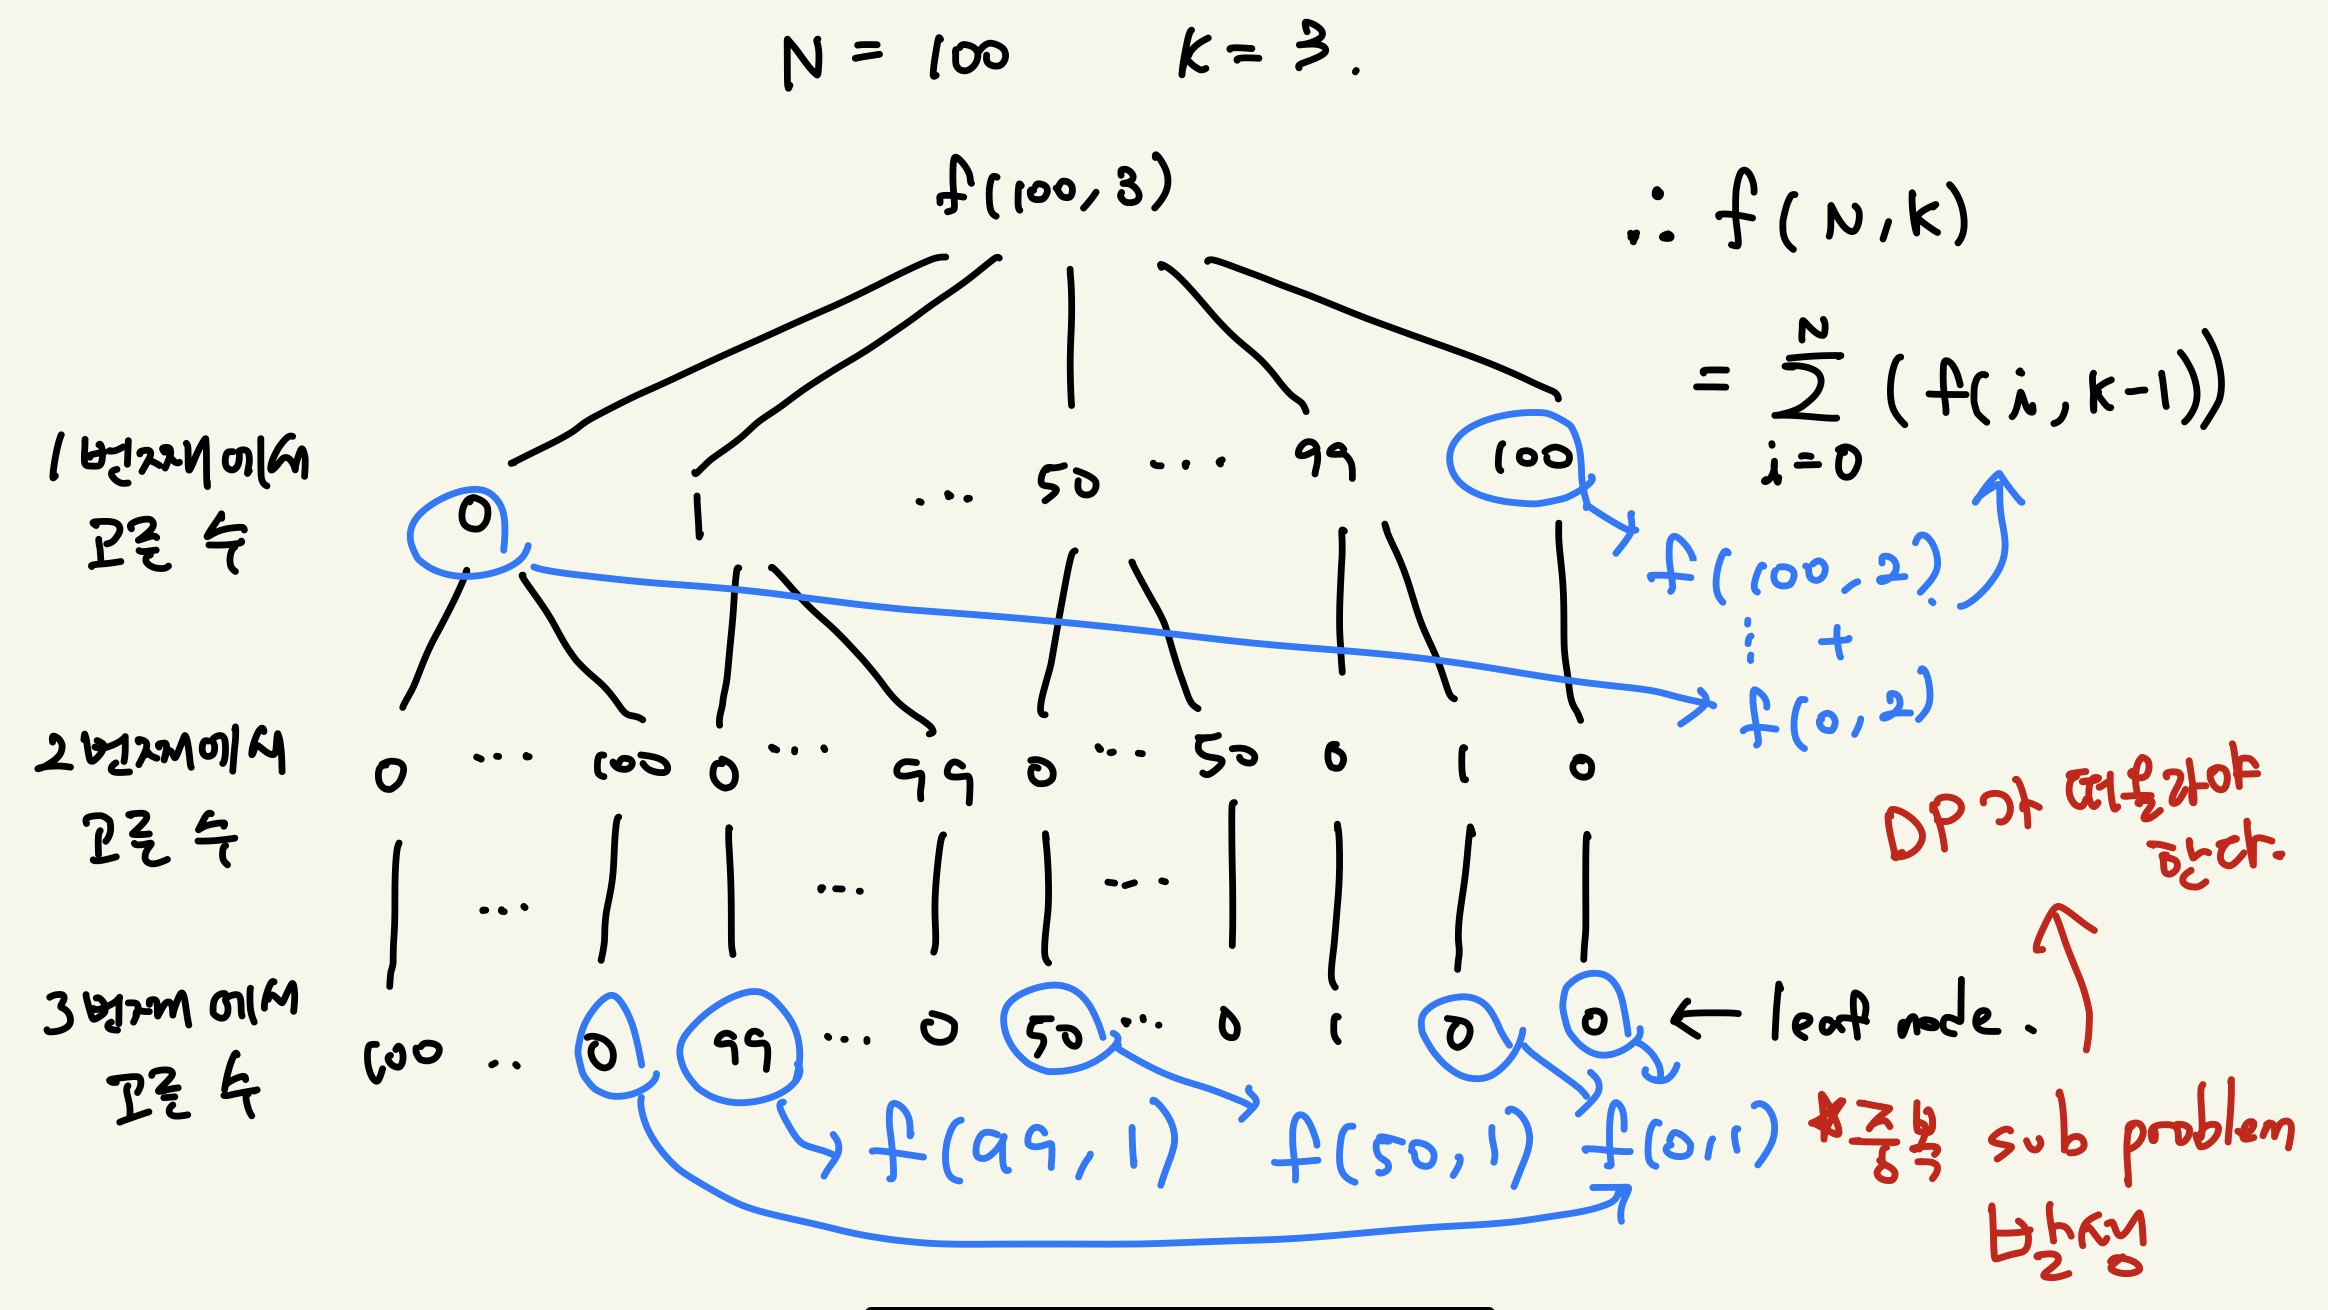 N = 100 K = 3.
f(100,3)
∴ f(N,K)
= N∑i=0 (f(i,K-1))
1번째에서
고를 수
0 1 ... 50 ... 99 100
f(100,2)
⋮ +
f(0,2)
2번째에서
고를 수
0 ... 100 0 ... 99 0 ... 50 0 1 0
... ... ...
DP가 떠올라야
한다.
3번째에서
고를 수
100 .. 0 99 ... 0 50 ... 0 1 0 0 ← leaf node.
f(99,1) f(50,1) f(0,1)
* 중복 sub problem
발생